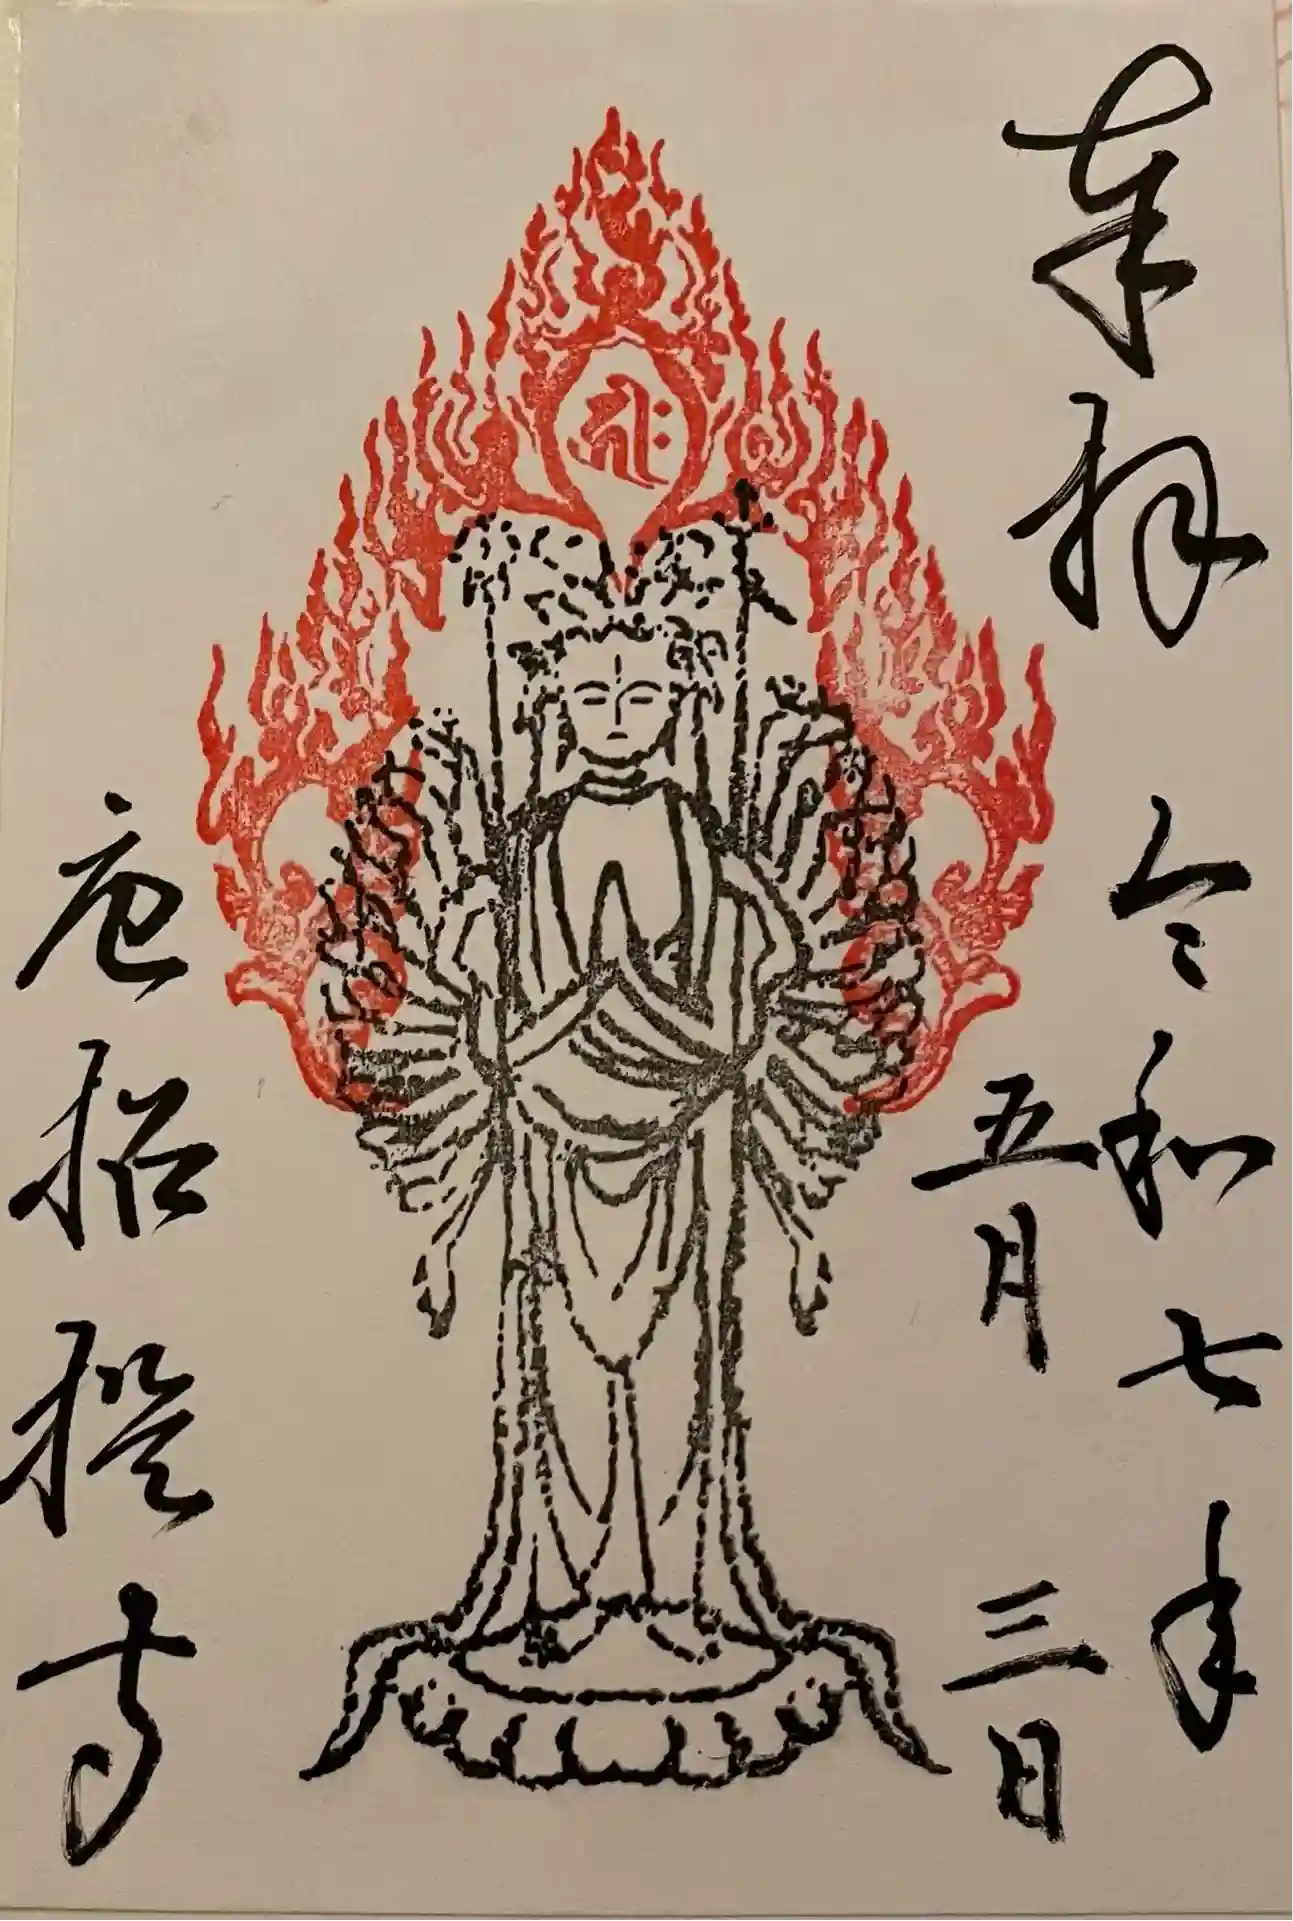 奉拝
令和七年
五月三日
唐招提寺